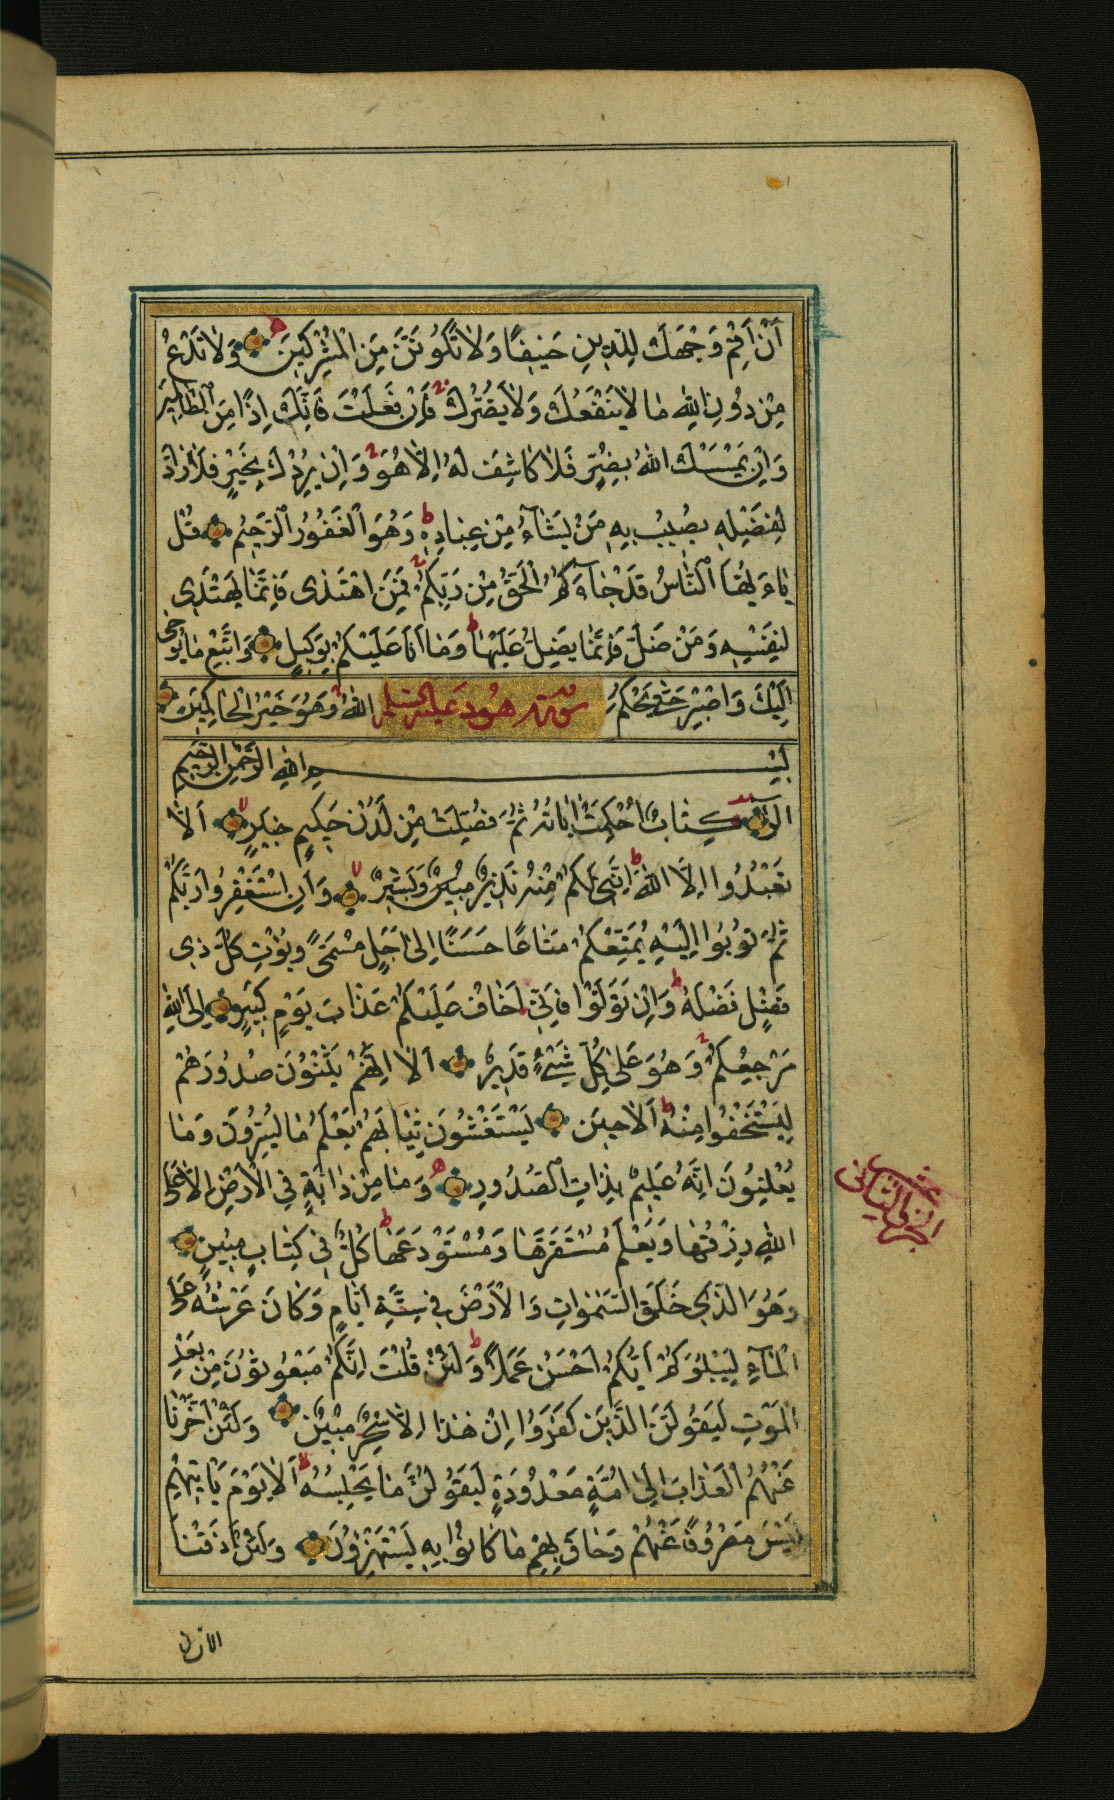 أَنْ أَقِمْ وَجْهَكَ لِلدِّينِ حَنِيفًا وَلَا تَكُونَنَّ مِنَ الْمُشْرِكِينَ وَلَا تَدْعُ
مِنْ دُونِ اللّٰهِ مَا لَا يَنْفَعُكَ وَلَا يَضُرُّكَ فَإِنْ فَعَلْتَ فَإِنَّكَ إِذًا مِنَ الظَّالِمِينَ
وَإِنْ يَمْسَسْكَ اللّٰهُ بِضُرٍّ فَلَا كَاشِفَ لَهُ إِلَّا هُوَ وَإِنْ يُرِدْكَ بِخَيْرٍ فَلَا رَادَّ
لِفَضْلِهِ يُصِيبُ بِهِ مَنْ يَشَاءُ مِنْ عِبَادِهِ وَهُوَ الْغَفُورُ الرَّحِيمُ قُلْ
يَا أَيُّهَا النَّاسُ قَدْ جَاءَكُمُ الْحَقُّ مِنْ رَبِّكُمْ فَمَنِ اهْتَدٰى فَإِنَّمَا يَهْتَدِي
لِنَفْسِهِ وَمَنْ ضَلَّ فَإِنَّمَا يَضِلُّ عَلَيْهَا وَمَا أَنَا عَلَيْكُمْ بِوَكِيلٍ وَاتَّبِعْ مَا يُوحٰى
إِلَيْكَ وَاصْبِرْ حَتّٰى يَحْكُمَ سورة هود عليه السلم اللّٰهُ وَهُوَ خَيْرُ الْحَاكِمِينَ
بِسْمِ اللّٰهِ الرَّحْمٰنِ الرَّحِيمِ
الٓرٰ كِتَابٌ أُحْكِمَتْ اٰيَاتُهُ ثُمَّ فُصِّلَتْ مِنْ لَدُنْ حَكِيمٍ خَبِيرٍ أَلَّا
تَعْبُدُوا إِلَّا اللّٰهَ إِنَّنِي لَكُمْ مِنْهُ نَذِيرٌ مبين وَبَشِيرٌ وَأَنِ اسْتَغْفِرُوا رَبَّكُمْ
ثُمَّ تُوبُوا إِلَيْهِ يُمَتِّعْكُمْ مَتَاعًا حَسَنًا إِلٰى أَجَلٍ مُسَمًّى وَيُؤْتِ كُلَّ ذِي
فَضْلٍ فَضْلَهُ وَإِنْ تَوَلَّوْا فَإِنِّي أَخَافُ عَلَيْكُمْ عَذَابَ يَوْمٍ كَبِيرٍ إِلَى اللّٰهِ
مَرْجِعُكُمْ وَهُوَ عَلٰى كُلِّ شَيْءٍ قَدِيرٌ أَلَا إِنَّهُمْ يَثْنُونَ صُدُورَهُمْ
لِيَسْتَخْفُوا مِنْهُ أَلَا حِينَ يَسْتَغْشُونَ ثِيَابَهُمْ يَعْلَمُ مَا يُسِرُّونَ وَمَا
يُعْلِنُونَ إِنَّهُ عَلِيمٌ بِذَاتِ الصُّدُورِ وَمَا مِنْ دَابَّةٍ فِي الْأَرْضِ إِلَّا عَلَى
اللّٰهِ رِزْقُهَا وَيَعْلَمُ مُسْتَقَرَّهَا وَمُسْتَوْدَعَهَا كُلٌّ فِي كِتَابٍ مُبِينٍ
وَهُوَ الَّذِي خَلَقَ السَّمٰوَاتِ وَالْأَرْضَ فِي سِتَّةِ أَيَّامٍ وَكَانَ عَرْشُهُ عَلَى
الْمَاءِ لِيَبْلُوَكُمْ أَيُّكُمْ أَحْسَنُ عَمَلًا وَلَئِنْ قُلْتَ إِنَّكُمْ مَبْعُوثُونَ مِنْ بَعْدِ
الْمَوْتِ لَيَقُولَنَّ الَّذِينَ كَفَرُوا إِنْ هٰذَا إِلَّا سِحْرٌ مُبِينٌ وَلَئِنْ أَخَّرْنَا
عَنْهُمُ الْعَذَابَ إِلٰى أُمَّةٍ مَعْدُودَةٍ لَيَقُولُنَّ مَا يَحْبِسُهُ أَلَا يَوْمَ يَأْتِيهِمْ
لَيْسَ مَصْرُوفًا عَنْهُمْ وَحَاقَ بِهِمْ مَا كَانُوا بِهِ يَسْتَهْزِؤُنَ وَلَئِنْ أَذَقْنَا
الجزء الثانى عشر
الانسان